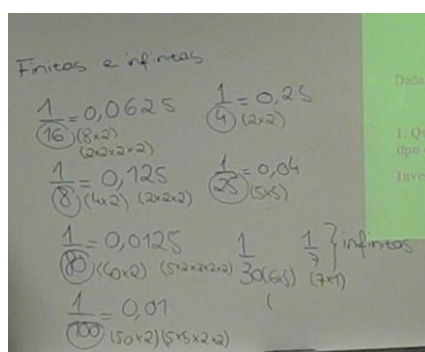 Finitas e infinitas
1/16 = 0,0625 (8x2) (2x2x2x2)
1/4 = 0,25 (2x2)
1/8 = 0,125 (4x2) (2x2x2)
1/25 = 0,04 (5x5)
1/80 = 0,0125 (40x2) (5x2x2x2x2)
1/30 (6x5) 1/7 (7x1) } infinitas
(
1/100 = 0,01 (50x2) (5x5x2x2)
Dada
1: Q
tipo
Inve